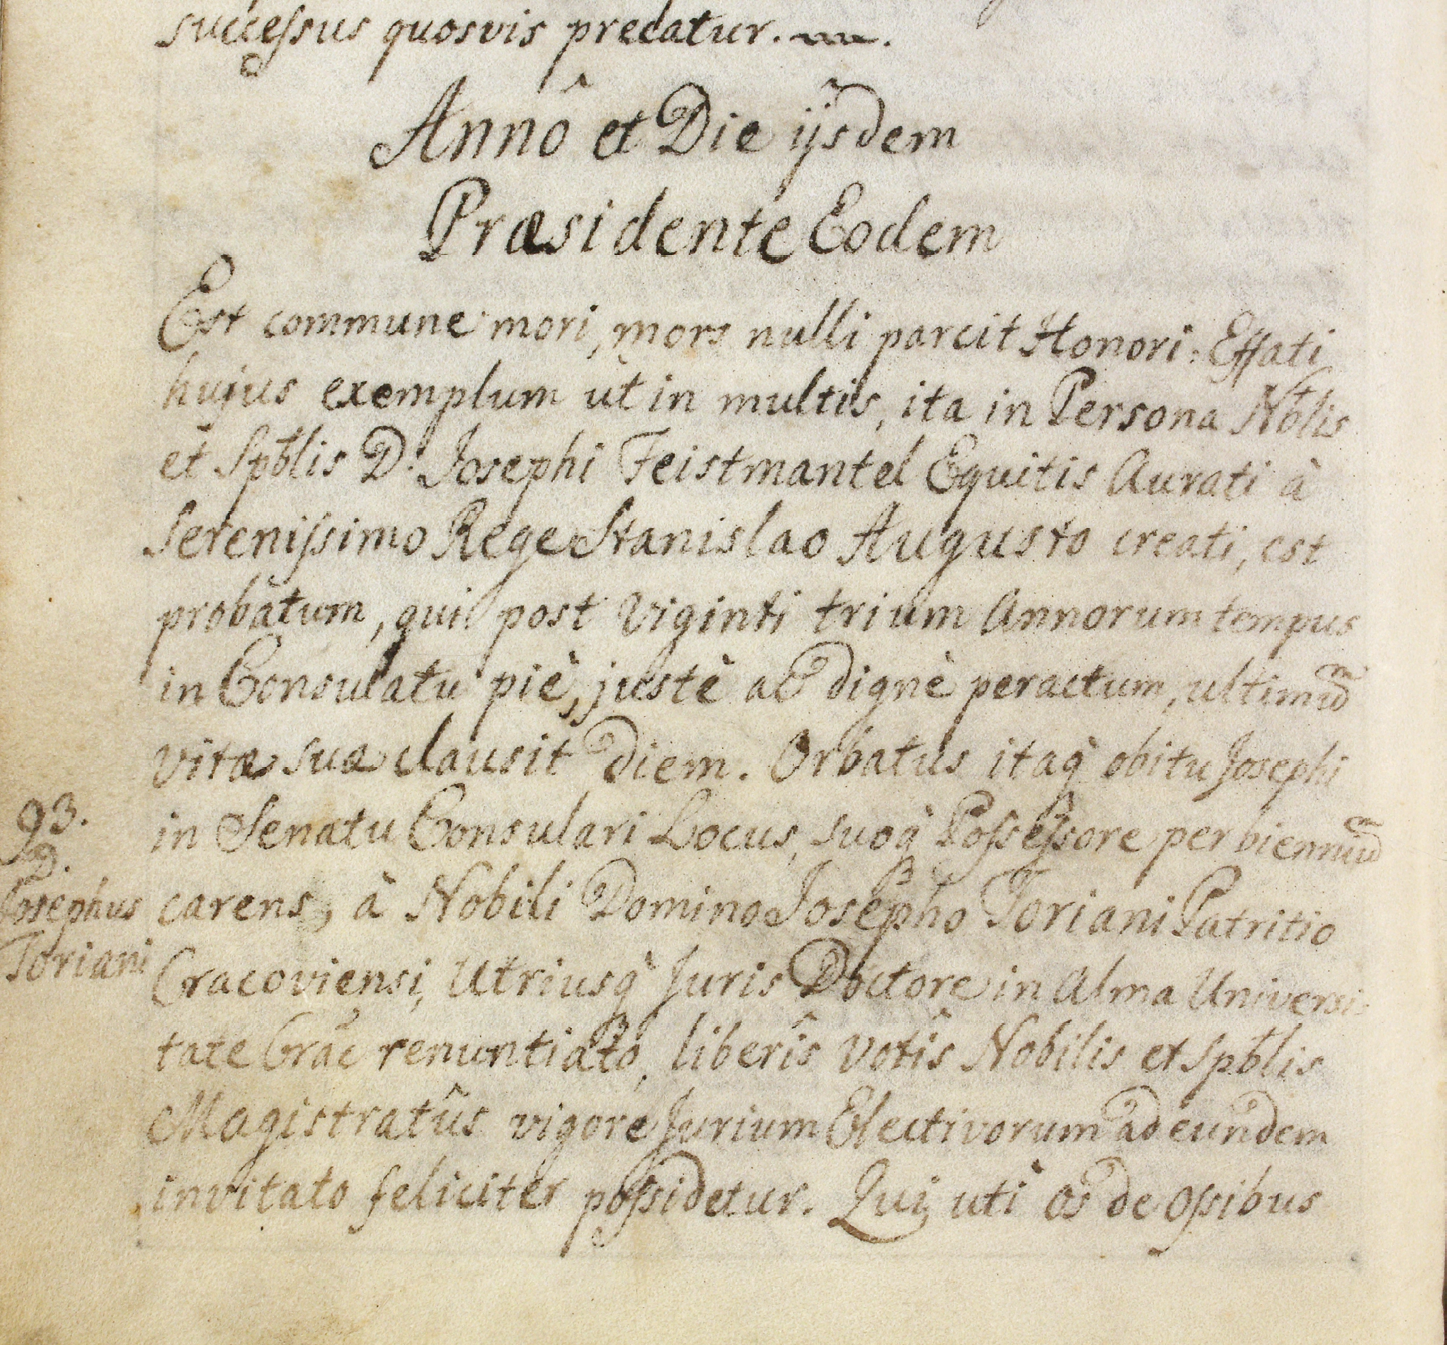 successus quosvis precatur.
Annô et Die ijsdem
Præsidente Eodem
Est commune mori, mors nulli parcit Honori: Effati
hujus exemplum ut in multis, ita in Persona Nblis
et Spblis D. Josephi Feistmantel Equitis Aurati à
Serenissimo Rege Stanislao Augusto creati, est
probatum, qui post Viginti trium Annorum tempus
in Consulatu piè, justè ac dignè peractum, ultimū
vitæ suæ clausit diem. Orbatus itaq̀ obitu Josephi
in Senatu Consulari Locus, suoq̀ Possessore per bienniū
93.
D.
Josephus
Toriani
carens, à Nobili Domino Josepho Toriani Patritio
Cracoviensi, Utriusq̀ Juris Doctore in Alma Universi-
tate Crac renuntiato, liberîs Votîs Nobilis et Spblis
Magistratûs vigore Jurium Electivorum ad eundem
invitato feliciter possidetur. Qui, uti os de ossibus